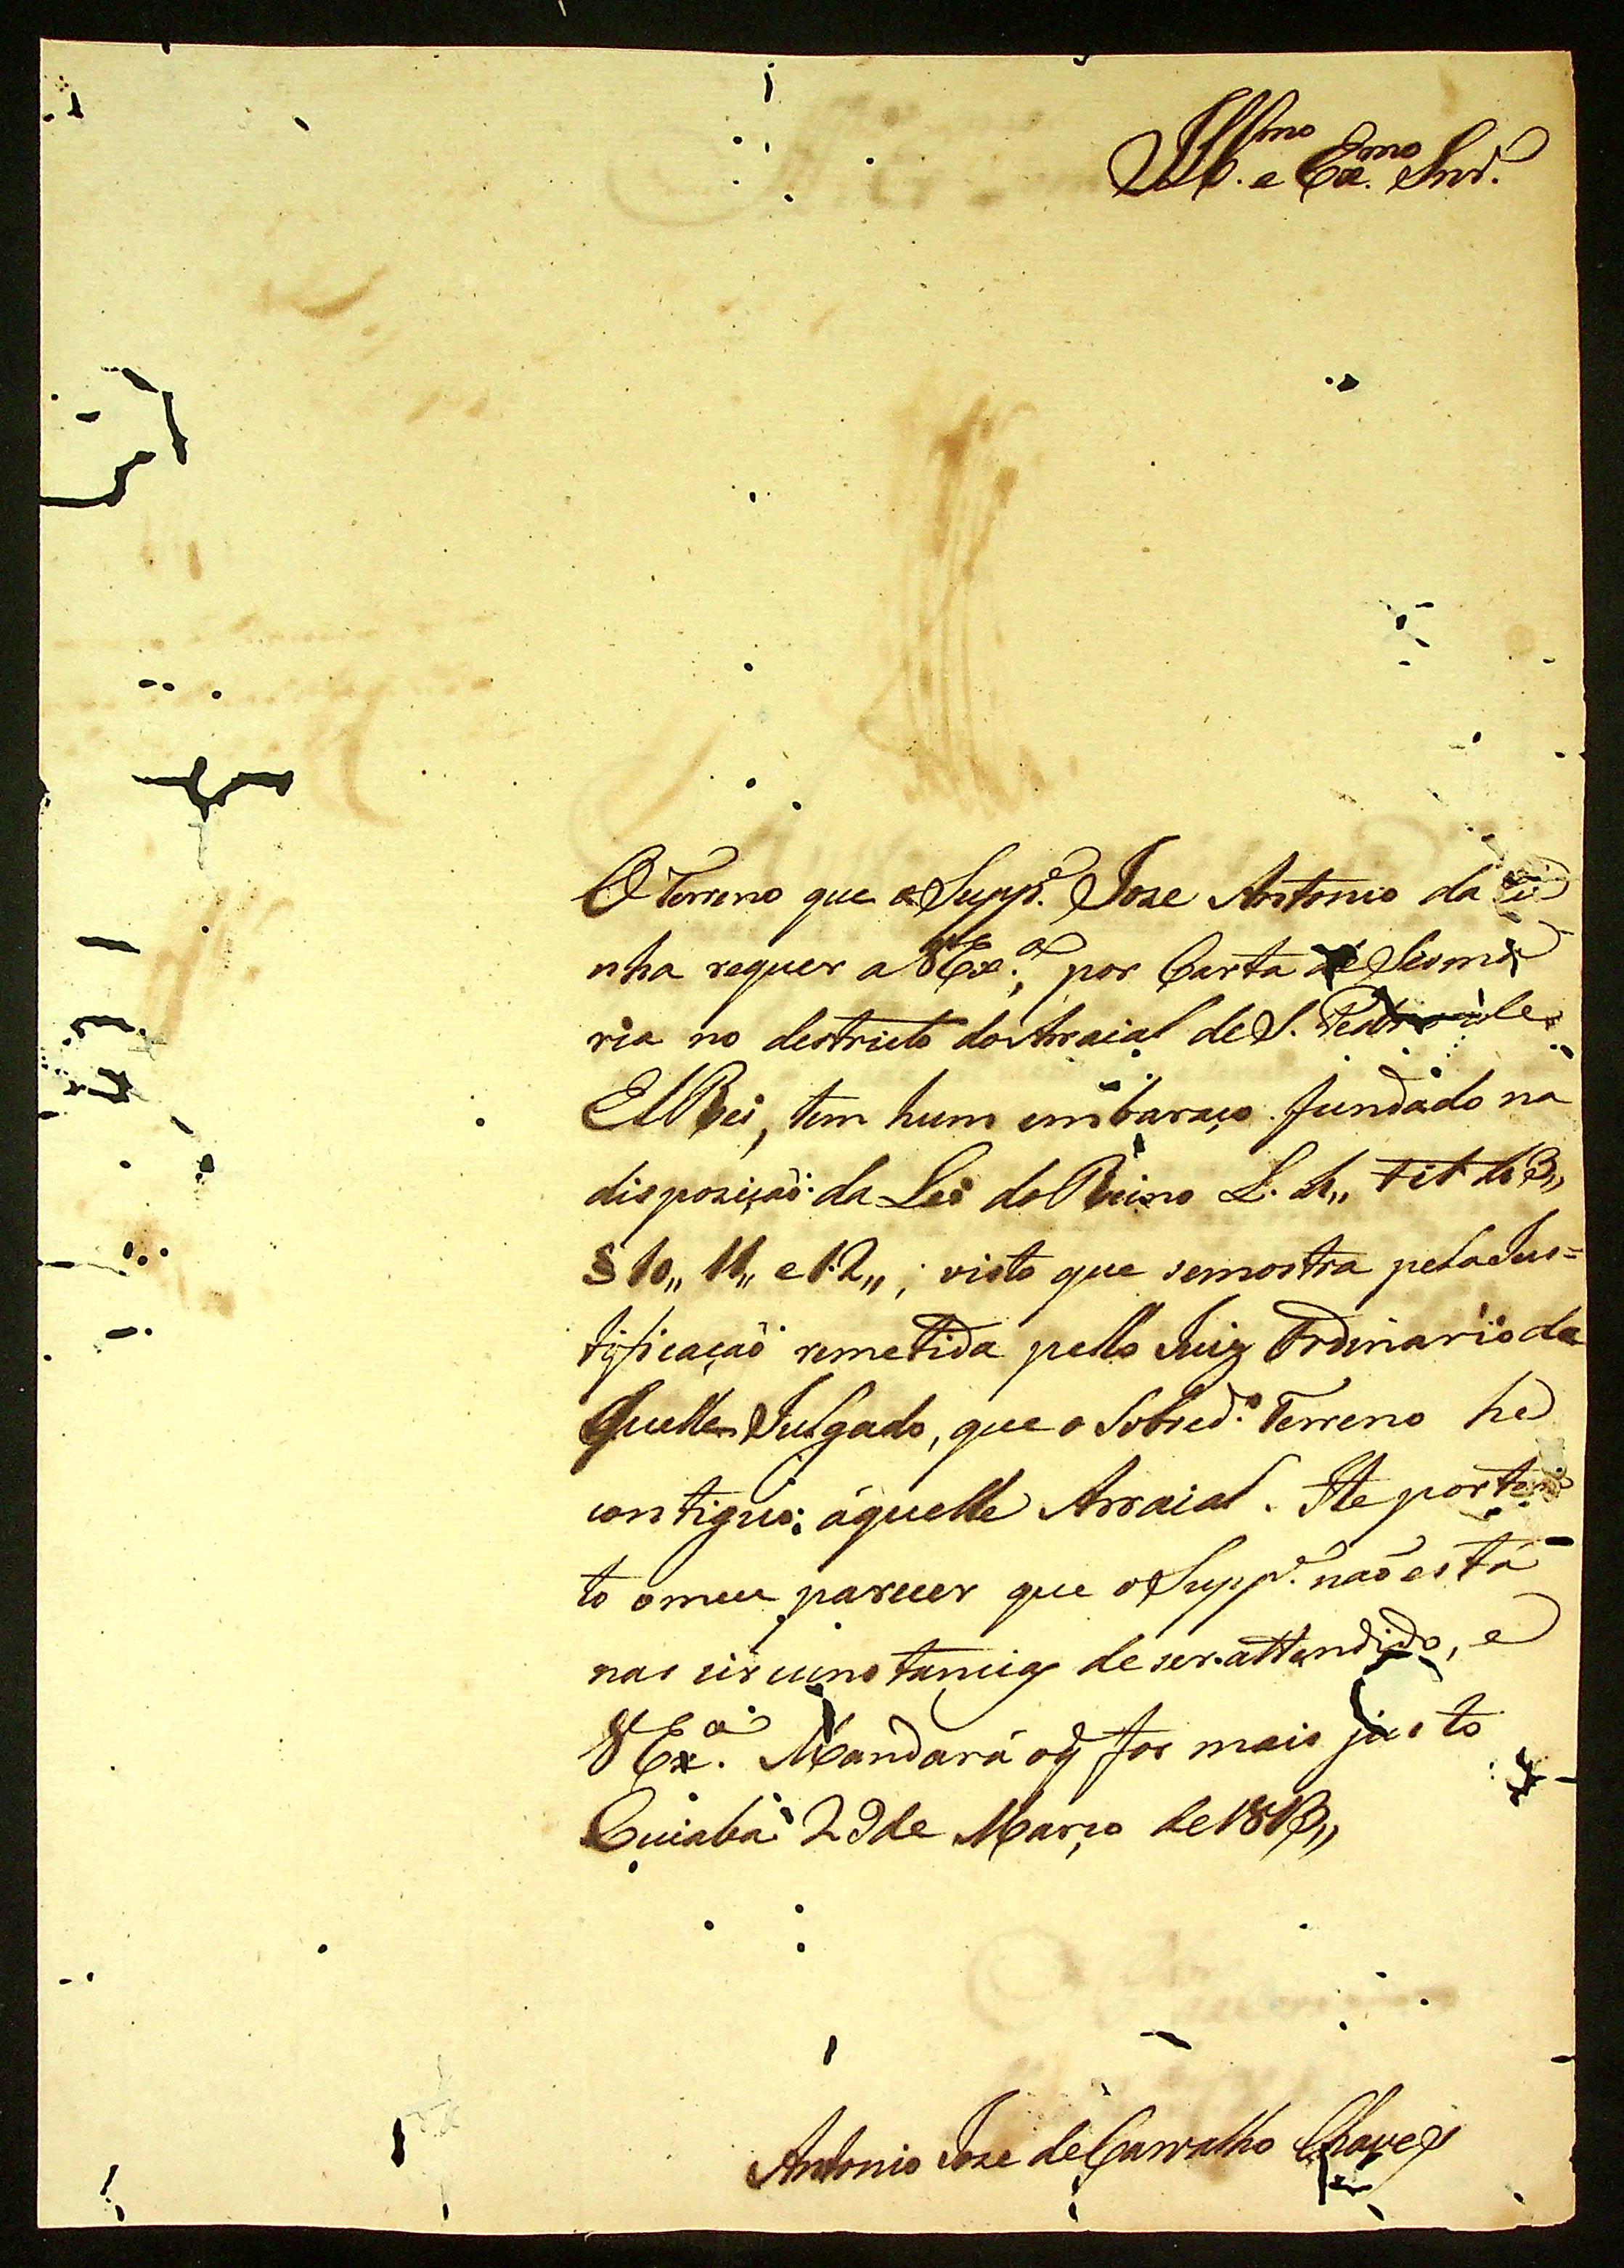 Ill.mo e Ex.mo Snr.
O Terreno que o Supp.e Joze Antonio da
nha requer a V Ex.a, por Carta de Sesma
ria no destricto do Arraial de S. Pedro de
El Rei, tem hum embaraço fundado na
disposição da Lei do Reino L. 4,, tit 43,,
§ 10,, 11,, e 12,, ; visto que semostra pelaJus=
tificação remetida pello Juiz Ordinario da
quelle Julgado, que o Sobred.o Terreno he
contiguo áquelle Arraial. He portan
to omeu parecer que o Supp.e não está
nas circumstancias de ser attendido, e
V Ex.a Mandará oq̃ for mais justo
Cuiabá 29 de Março de 1813,,
Antonio Joze de Carvalho Chaves